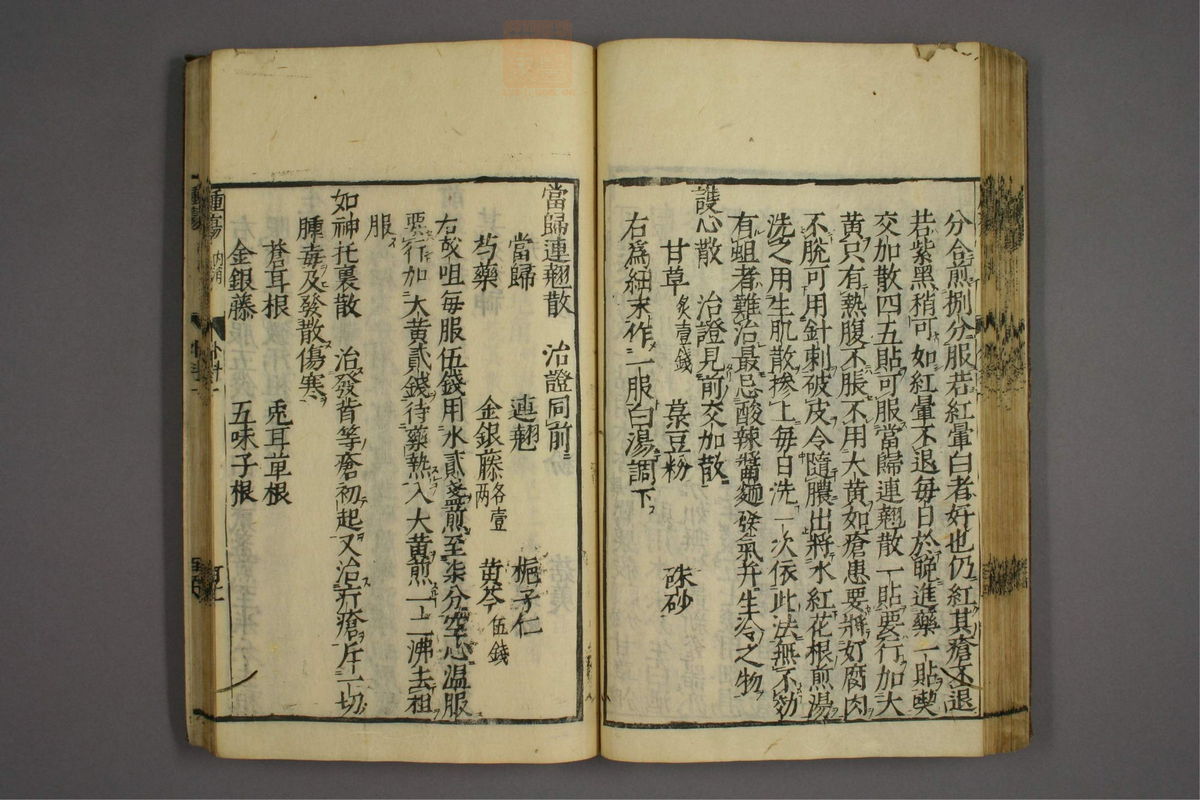 分合煎捌分服若紅暈白者好也仍紅其瘡不退
若紫黑稍可如紅暈不退每日於晩進藥一貼喫
交加散四五貼可服當歸連翹散一貼要行加大
黄只有熱腹不脹不用大黄如瘡患要將好腐肉
不脫可用針刺破皮令隨膿出將水紅花根煎湯
洗之用生肌散摻上每日洗一次依此法無不効
有蛆者難治最忌酸辣醬麺燥氣并生冷之物
護心散 治證見前交加散
甘草 炙壹錢 菉豆粉 硃砂
右爲細末作二服白湯調下
當歸連翹散 治證同前
當歸 連翹 梔子仁
芍藥 金銀藤 各壹兩 黄芩 伍錢
右㕮咀每服伍錢用水貳盞煎至柒分空心温服
要行加大黄貳錢待藥熱入大黄煎一二沸去柤
服
如神托裏散 治發背等瘡初起又治疔瘡并一切
腫毒及發散傷寒
蒼耳根 兎耳草根
金銀藤 五味子根